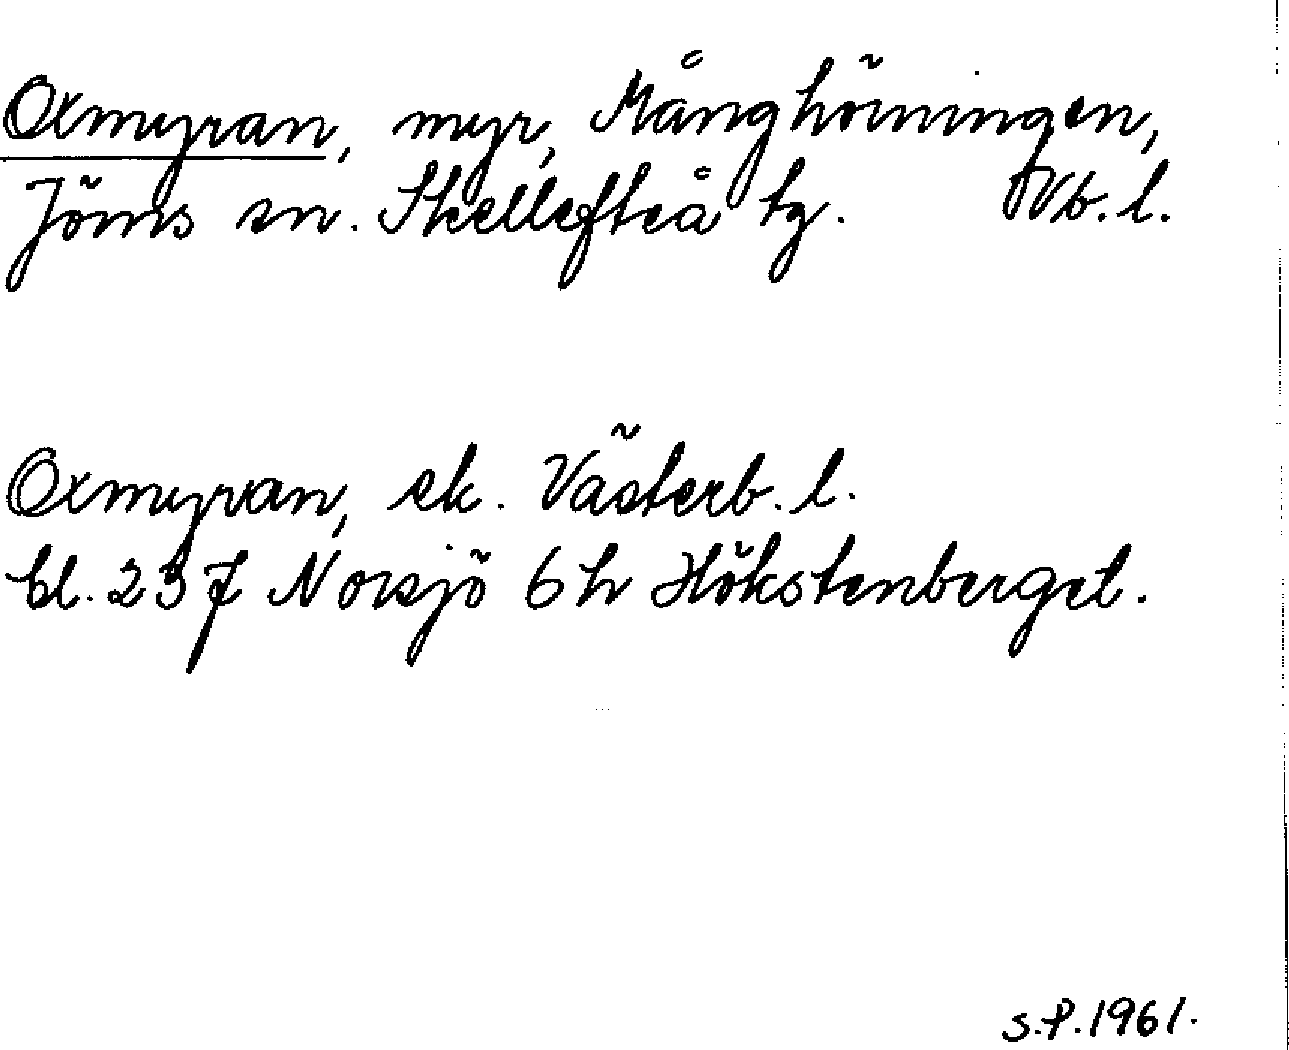 Oxmyran, myr, Månghörningen,
Jörns sn. Skellefteå tg. Vb. l.
Oxmyran, ek. Västerb. l.
bl. 237 Norsjö 6 h Hökstenberget.
S.P. 1961.